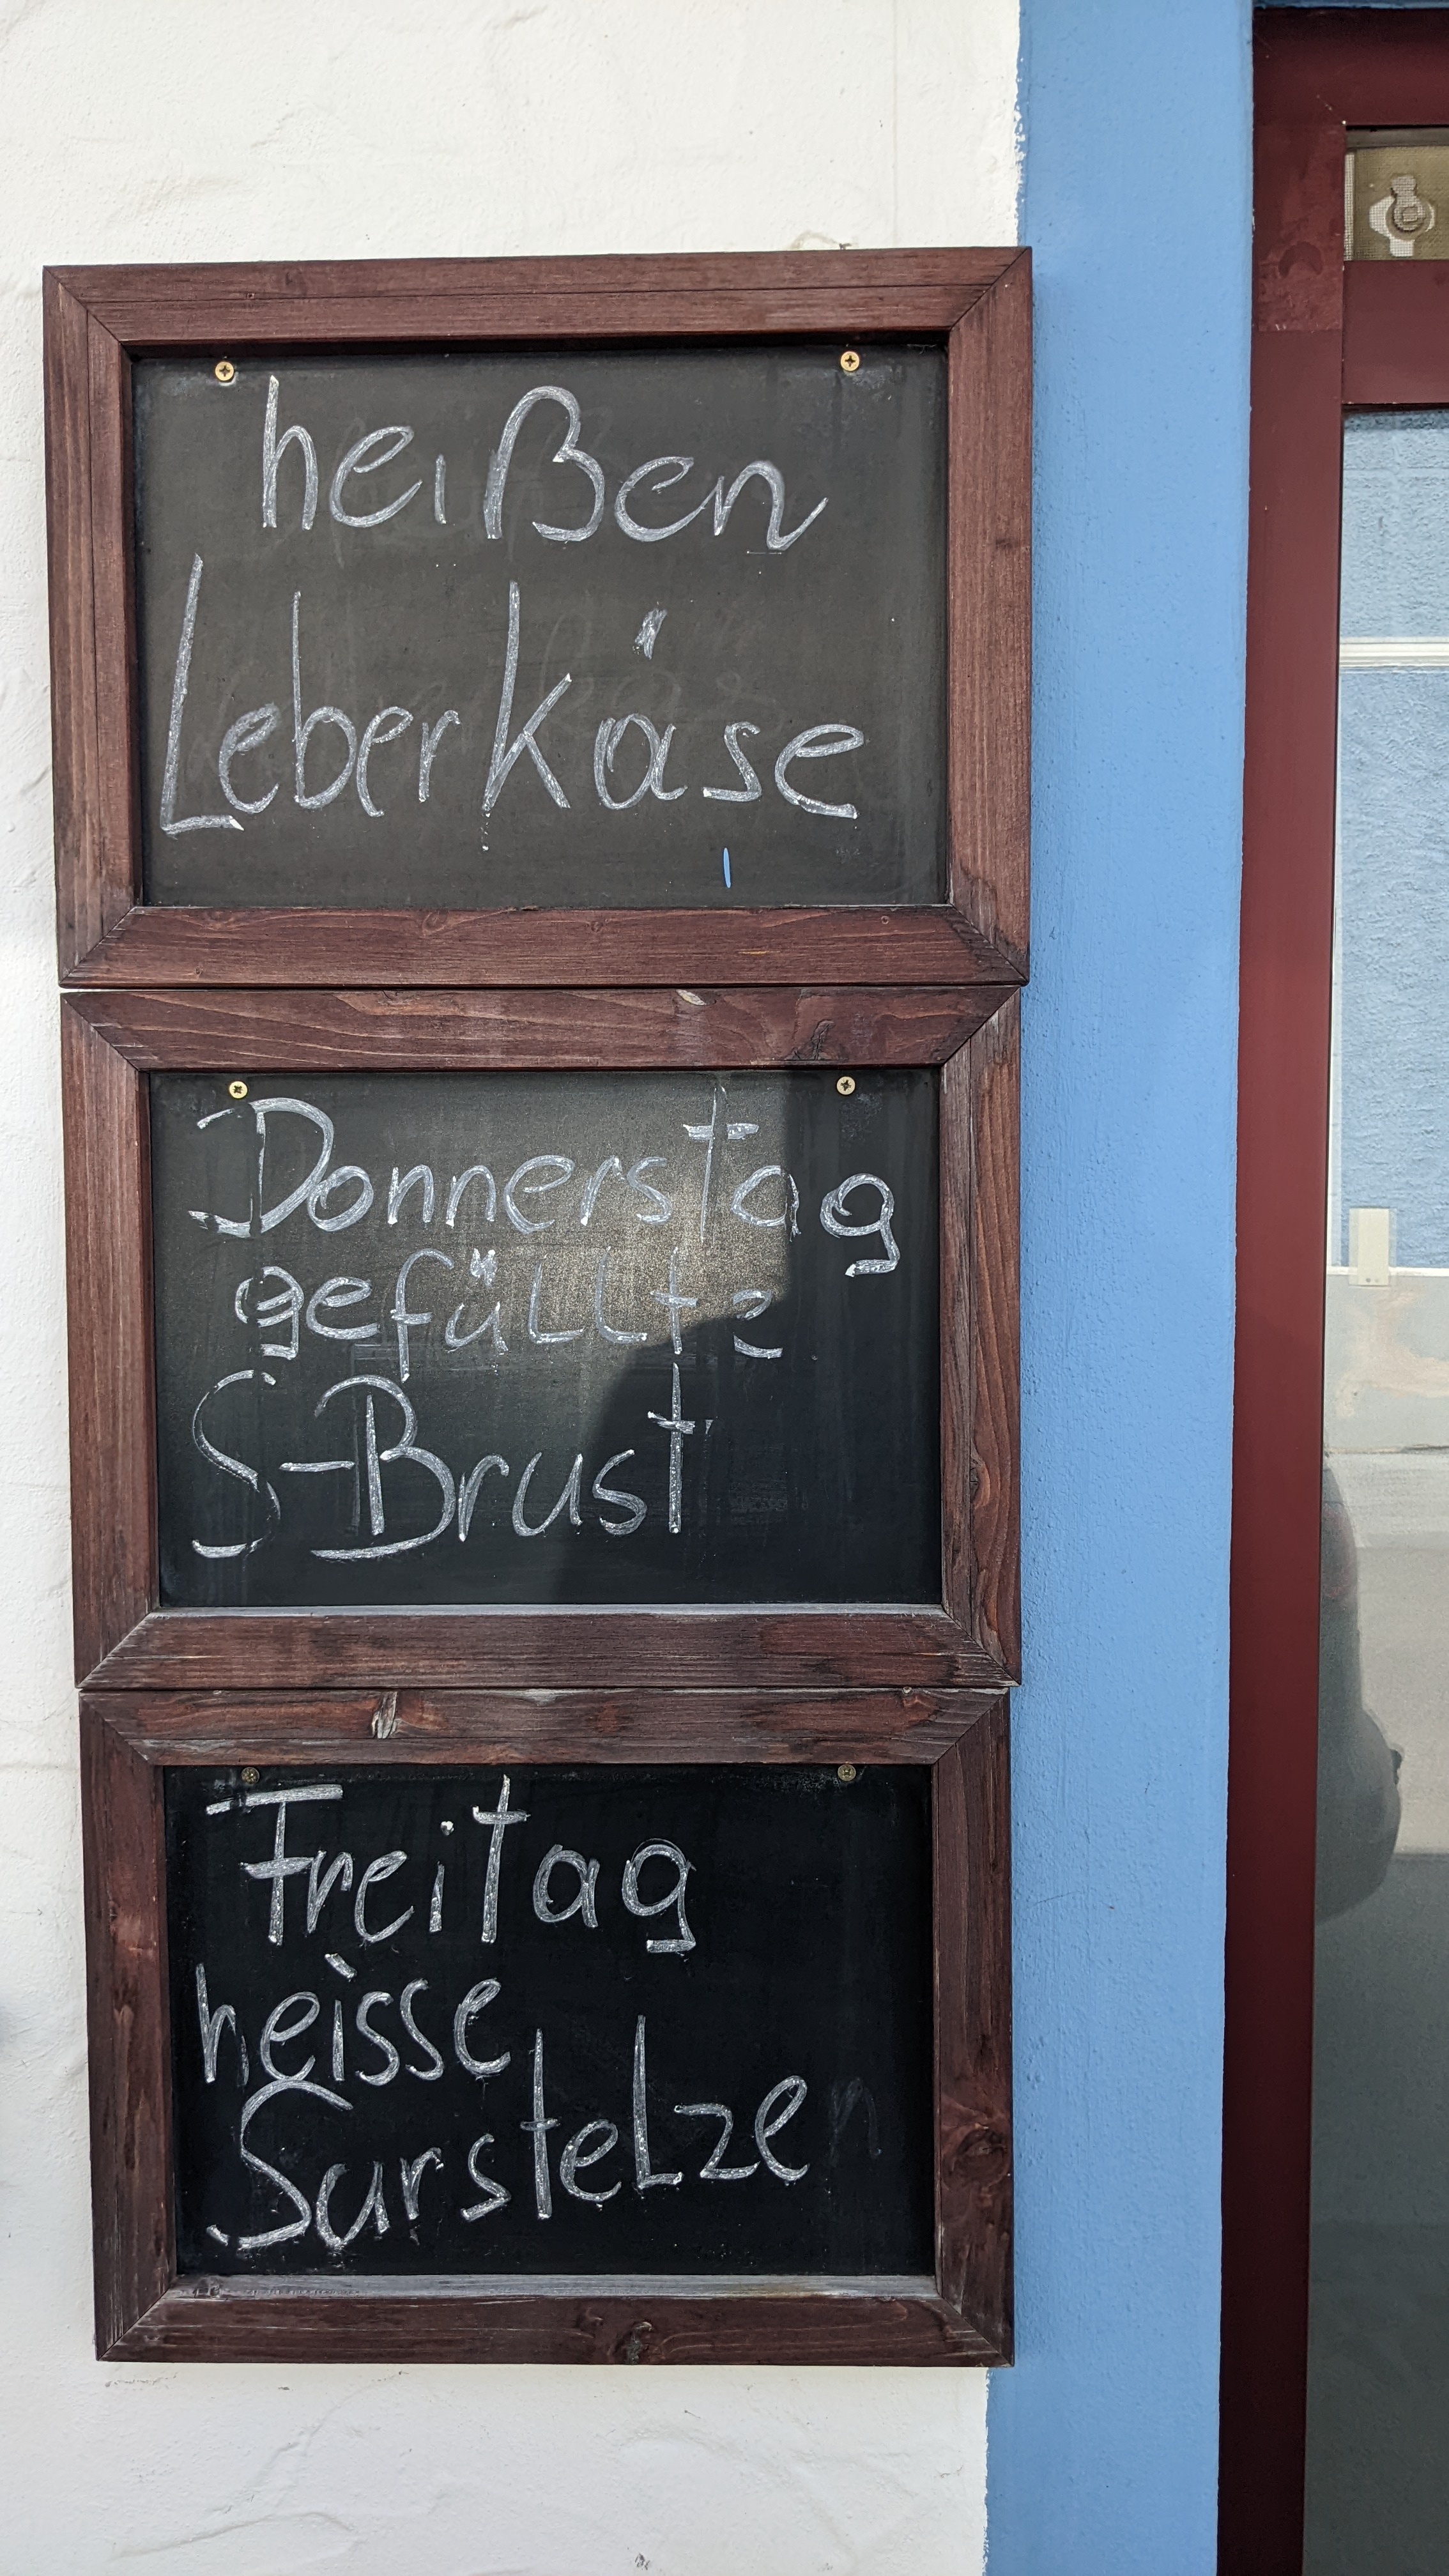 heißen
Leberkäse
Donnerstag
gefüllte
S-Brust
Freitag
heisse
Surstelze